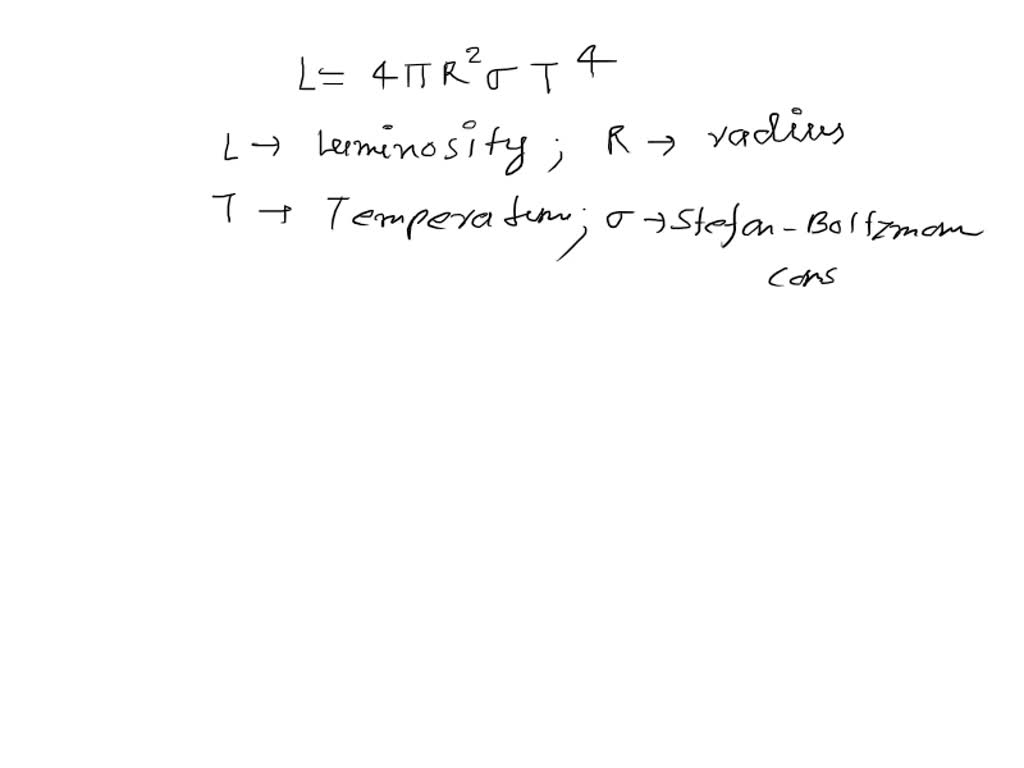 L = 4πR²σT⁴
L → Luminosity ; R → radius
T → Temperature ; σ → Stefan - Boltzmann
Cons